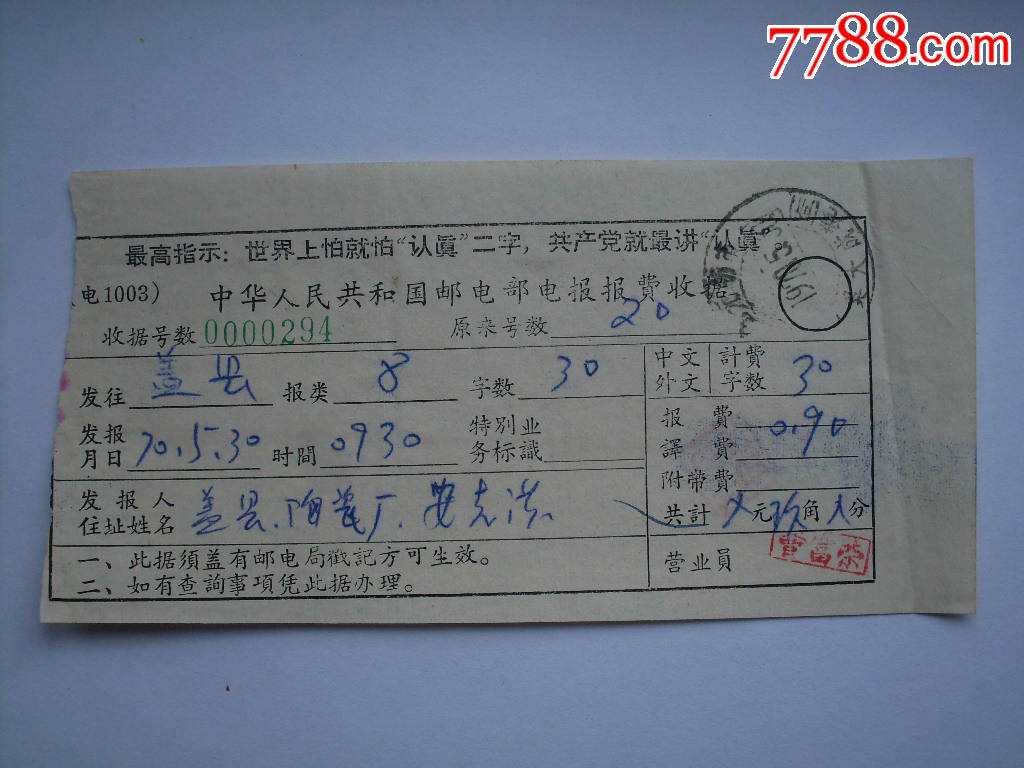 7788.com
最高指示：世界上怕就怕“认真”二字，共产党就最讲“认真”
电1003）
中华人民共和国邮电部电报报費收据
收据号数 0000294 原来号数 20
发往 盖县 报类 8 字数 30
中文 外文 計費字数 30
发报月日 70.5.30 时間 0930 特别业务标識
报費 0.90
譯費
附带費
发报人住址姓名 盖县.陶瓷厂.
共計 元 玖角 分
一、此据須盖有邮电局戳記方可生效。
二、如有查詢事項凭此据办理。
营业员